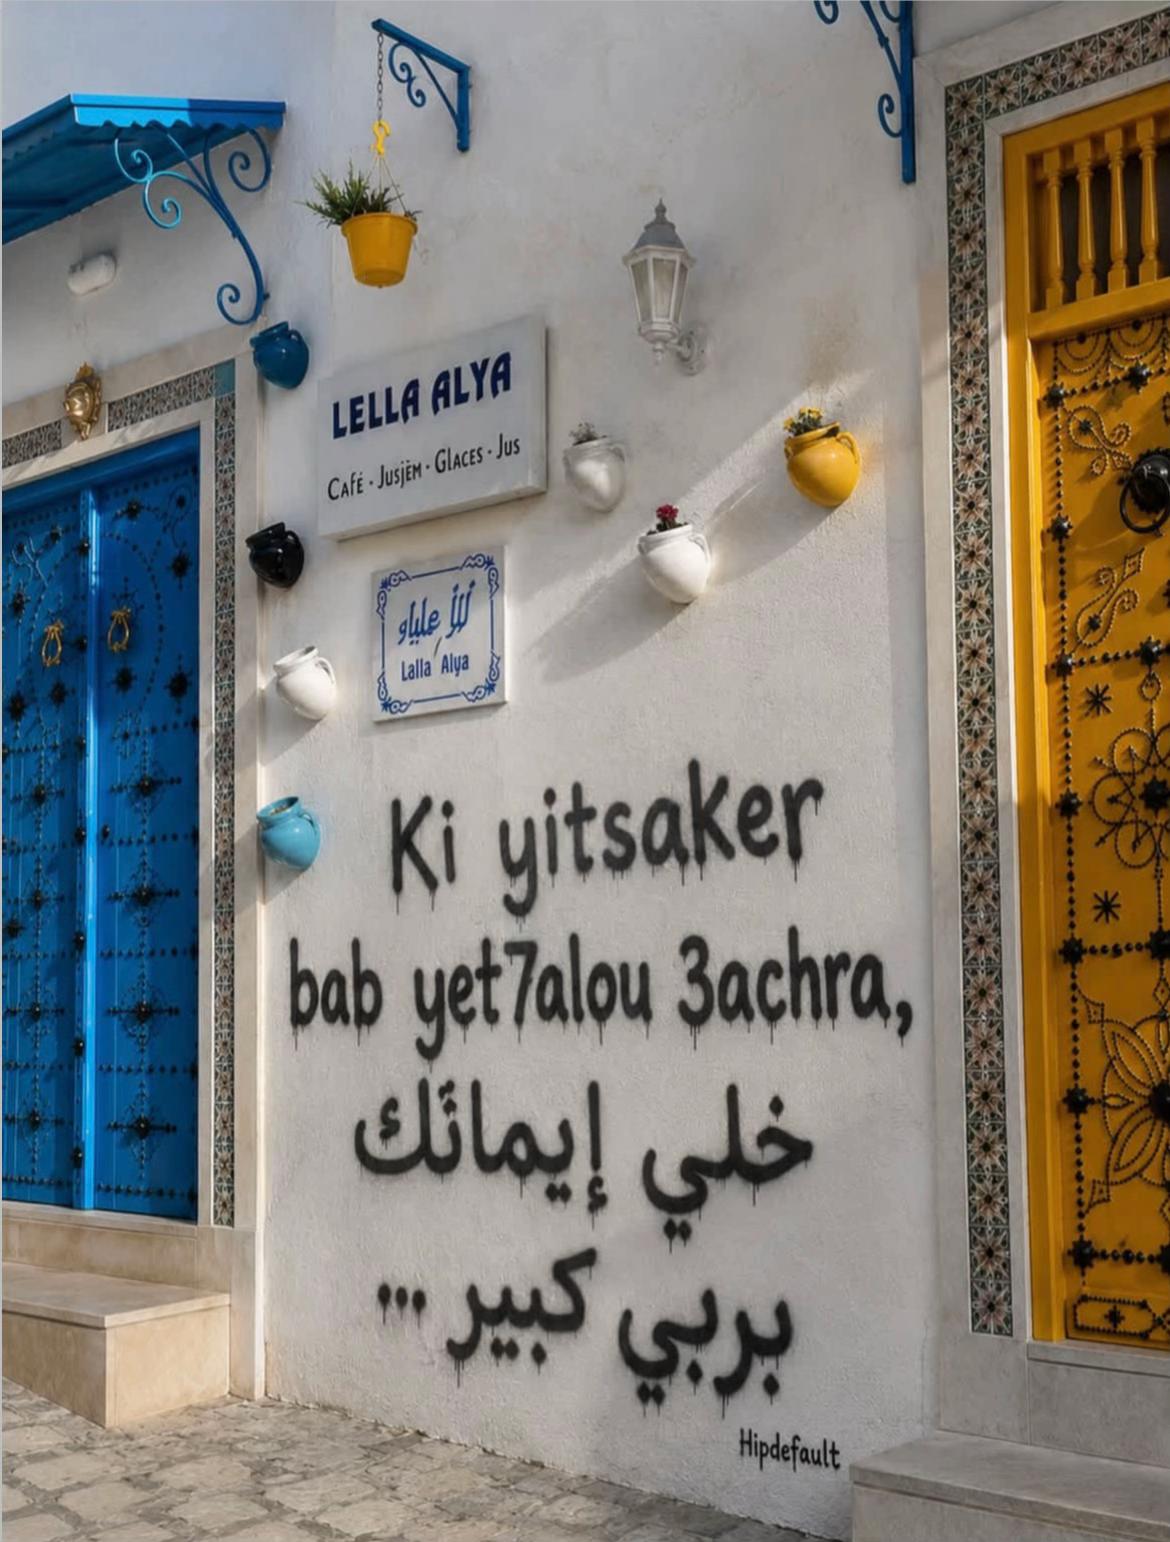 LELLA ALYA
CAFÉ · JUSJËM · GLACES · JUS
Lalla Alya
Ki yitsaker
bab yet7alou 3achra,
خلي إيمانَك
بربي كبير ...
Hipdefault